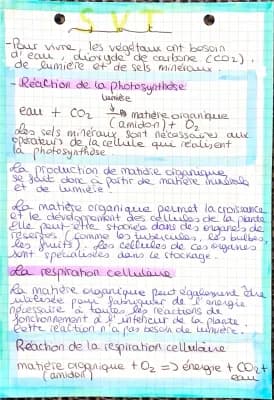 SVT
-Pour vivre, les végétaux ont besoin
d'eau, dioxyde de carbone (CO2),
de lumière et de sels minéraux.
- Réaction de la photosynthèse
lumière
eau + CO2 → matière organique
(amidon) + O2
Les sels minéraux sont nécessaires aux
opérateurs de la cellule qui réalisent
la photosynthèse
La production de matière organique
se fait donc à partir de matière minérale
et de lumière.
La matière organique permet la croissance
et le développement des cellules de la plante
Elle peut être stockée dans des organes de
réserves (comme les tubercules, les bulbes
les fruits). Les cellules de ces organes
sont spécialisées dans le stockage.
La respiration cellulaire
La matière organique peut également être
utilisée pour fabriquer de l'énergie
nécessaire à toutes les réactions de
fonctionnement à l'intérieur de la plante
Cette réaction n'a pas besoin de lumière.
Réaction de la respiration cellulaire
matière organique + O2 => énergie + CO2 +
(amidon) eau